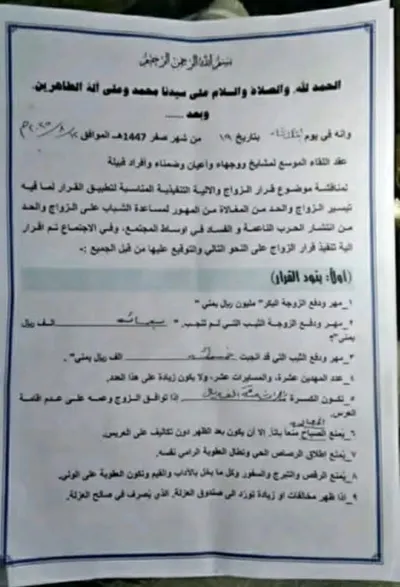 بسم الله الرحمن الرحيم
الحمد لله، والصلاة والسلام على سيدنا محمد وعلى آله الطاهرين.
وبعد .....
وانه في يوم بتاريخ ١٩ من شهر صفر 1447هـ الموافق
عقد اللقاء الموسع لمشايخ ووجهاء وأعيان وضمناء وأفراد قبيلة
لمناقشة موضوع قرار الزواج والآلية التنفيذية المناسبة لتطبيق القرار لما فيه
تيسير الزواج والحد من المغالاة من المهور لمساعدة الشباب على الزواج والحد
من انتشار الحرب الناعمة و الفساد في اوساط المجتمع، وفي الاجتماع تم اقرار
الية تنفيذ قرار الزواج على النحو التالي والتوقيع عليها من قبل الجميع :-
(اولاً: بنود القرار)
١_ مهر ودفع الزوجة البكر" مليون ريال يمني"
٢_ مهر ودفع الزوجة الثيب التي لم تنجب. " الف ريال
يمني"؛
٣_ مهر ودفع الثيب التي قد انجبت الف ريال يمني" .
٤_ عدد المهدين عشرة، والمسايرات عشر، ولا يكون زيادة على هذا العدد.
٥_ تكون الكسوة إذا توافق الزوج وعمه على عدم اقامة
العرس.
٦_ يُمنع الصباح منعاً باتاً. إلا أن يكون بعد الظهر دون تكاليف على العريس.
٧_ يُمنع إطلاق الرصاص الحي وتطال العقوبة الرامي نفسه.
٨_ يُمنع الرقص والتبرج والسفور وكل ما يخل بالآداب والقيم وتكون العقوبة على الولي.
٩_ اذا ظهر مخالفات او زيادة تورد الى صندوق العزلة. الذي يُصرف في صالح العزلة.